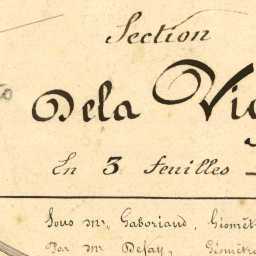 Section
Dela Vig
En 3 Feuilles
Sous Mr. Gaboriaud, Géomètr
Par Mr Defay, Géomètre